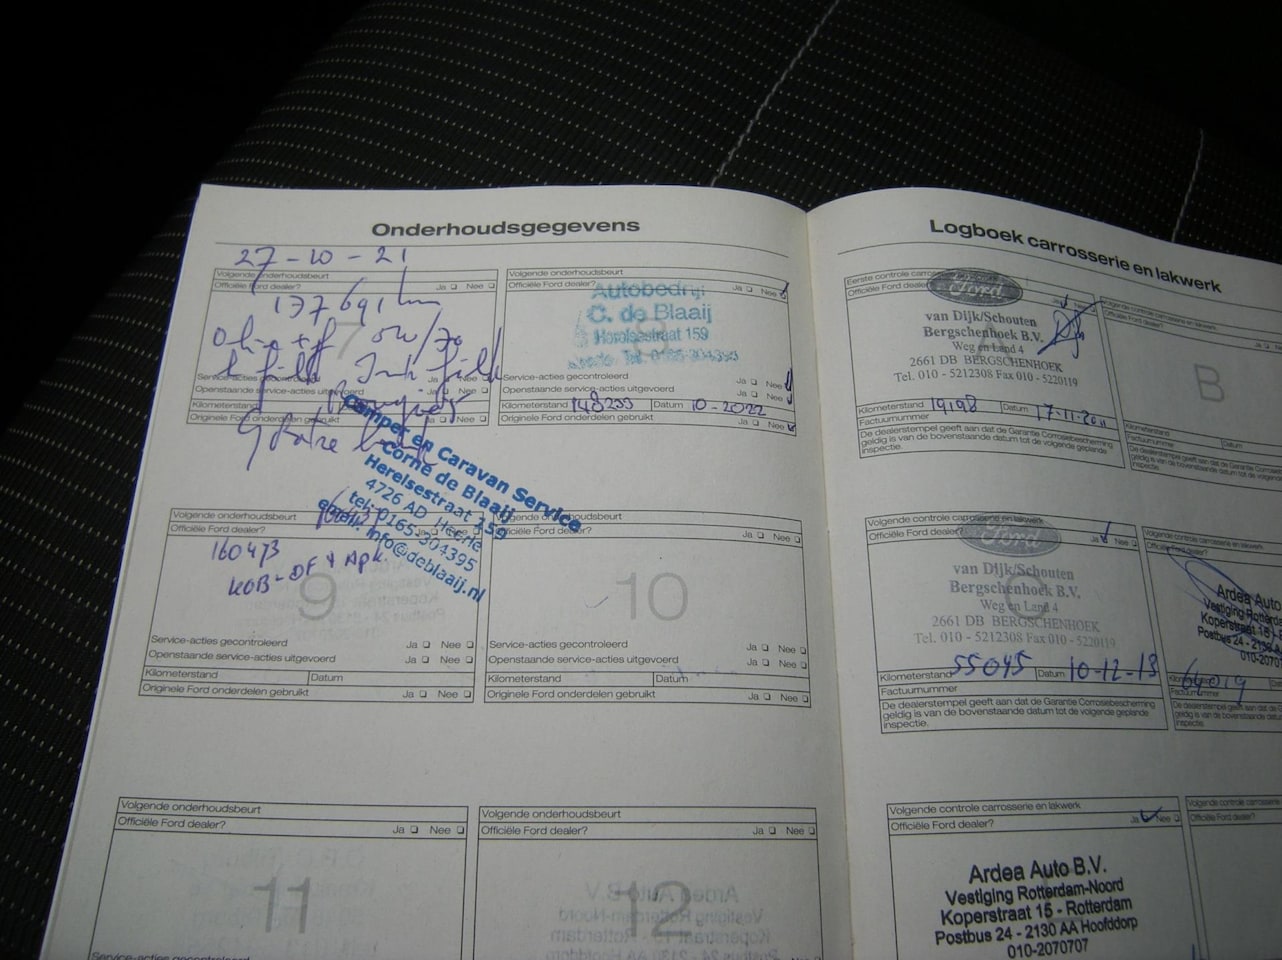 Onderhoudsgegevens
27-10-21
Volgende onderhoudsbeurt
Officiële Ford dealer? Ja Nee
137691 km
7
5W/70
Service-acties gecontroleerd Ja Nee
Openstaande service-acties uitgevoerd
Kilometerstand
Originele Ford onderdelen gebruikt
Camper en Caravan Service
Corné de Blaaij
Herelsestraat 159
4726 AD Heerle
tel: 0165-304395
email: info@deblaaij.nl
Volgende onderhoudsbeurt
Officiële Ford dealer? Ja Nee
8
Autobedrijf
C. de Blaaij
Herelsestraat 159
Tel. 0165-304395
Service-acties gecontroleerd Ja Nee
Openstaande service-acties uitgevoerd Ja Nee
Kilometerstand 148233 Datum 10-2022
Originele Ford onderdelen gebruikt Ja Nee
Volgende onderhoudsbeurt
Officiële Ford dealer? Ja Nee
160473
KOB-DF + Apk.
9
Service-acties gecontroleerd Ja Nee
Openstaande service-acties uitgevoerd Ja Nee
Kilometerstand Datum
Originele Ford onderdelen gebruikt Ja Nee
Volgende onderhoudsbeurt
Officiële Ford dealer? Ja Nee
10
Service-acties gecontroleerd Ja Nee
Openstaande service-acties uitgevoerd Ja Nee
Kilometerstand Datum
Originele Ford onderdelen gebruikt Ja Nee
Volgende onderhoudsbeurt
Officiële Ford dealer? Ja Nee
11
Service-acties gecontroleerd
Volgende onderhoudsbeurt
Officiële Ford dealer? Ja Nee
12
Logboek carrosserie en lakwerk
Eerste controle
Officiële Ford dealer
Ford
van Dijk/Schouten
Bergschenhoek B.V.
Weg en Land 4
2661 DB BERGSCHENHOEK
Tel. 010 - 5212308 Fax 010 - 5220119
A
Kilometerstand 19198 Datum 17-11-2011
Factuurnummer
De dealerstempel geeft aan dat de Garantie Corrosiebescherming
geldig is van de bovenstaande datum tot de volgende geplande
inspectie.
Volgende controle carrosserie en lakwerk
Officiële Ford dealer?
B
Kilometerstand Datum
Factuurnummer
De dealerstempel geeft aan dat de
geldig is van de bovenstaande datum tot de
inspectie.
Volgende controle carrosserie en lakwerk
Officiële Ford dealer? Ja Nee
Ford
van Dijk/Schouten
Bergschenhoek B.V.
Weg en Land 4
2661 DB BERGSCHENHOEK
Tel. 010 - 5212308 Fax 010 - 5220119
C
Kilometerstand 55045 Datum 10-12-13
Factuurnummer
De dealerstempel geeft aan dat de Garantie Corrosiebescherming
geldig is van de bovenstaande datum tot de volgende geplande
inspectie.
Volgende controle carrosserie en
Officiële Ford dealer?
Ardea Auto
Vestiging Rotterda
Koperstraat 15
Postbus 24 - 2130 A
010-20707
64019
Factuurnummer
De dealerstempel geeft aan dat de
geldig is van de bovenstaande
inspectie.
Volgende controle carrosserie en lakwerk
Officiële Ford dealer? Ja Nee
Ardea Auto B.V.
Vestiging Rotterdam-Noord
Koperstraat 15 - Rotterdam
Postbus 24 - 2130 AA Hoofddorp
010-2070707
Volgende controle carrosserie en
Officiële Ford dealer?